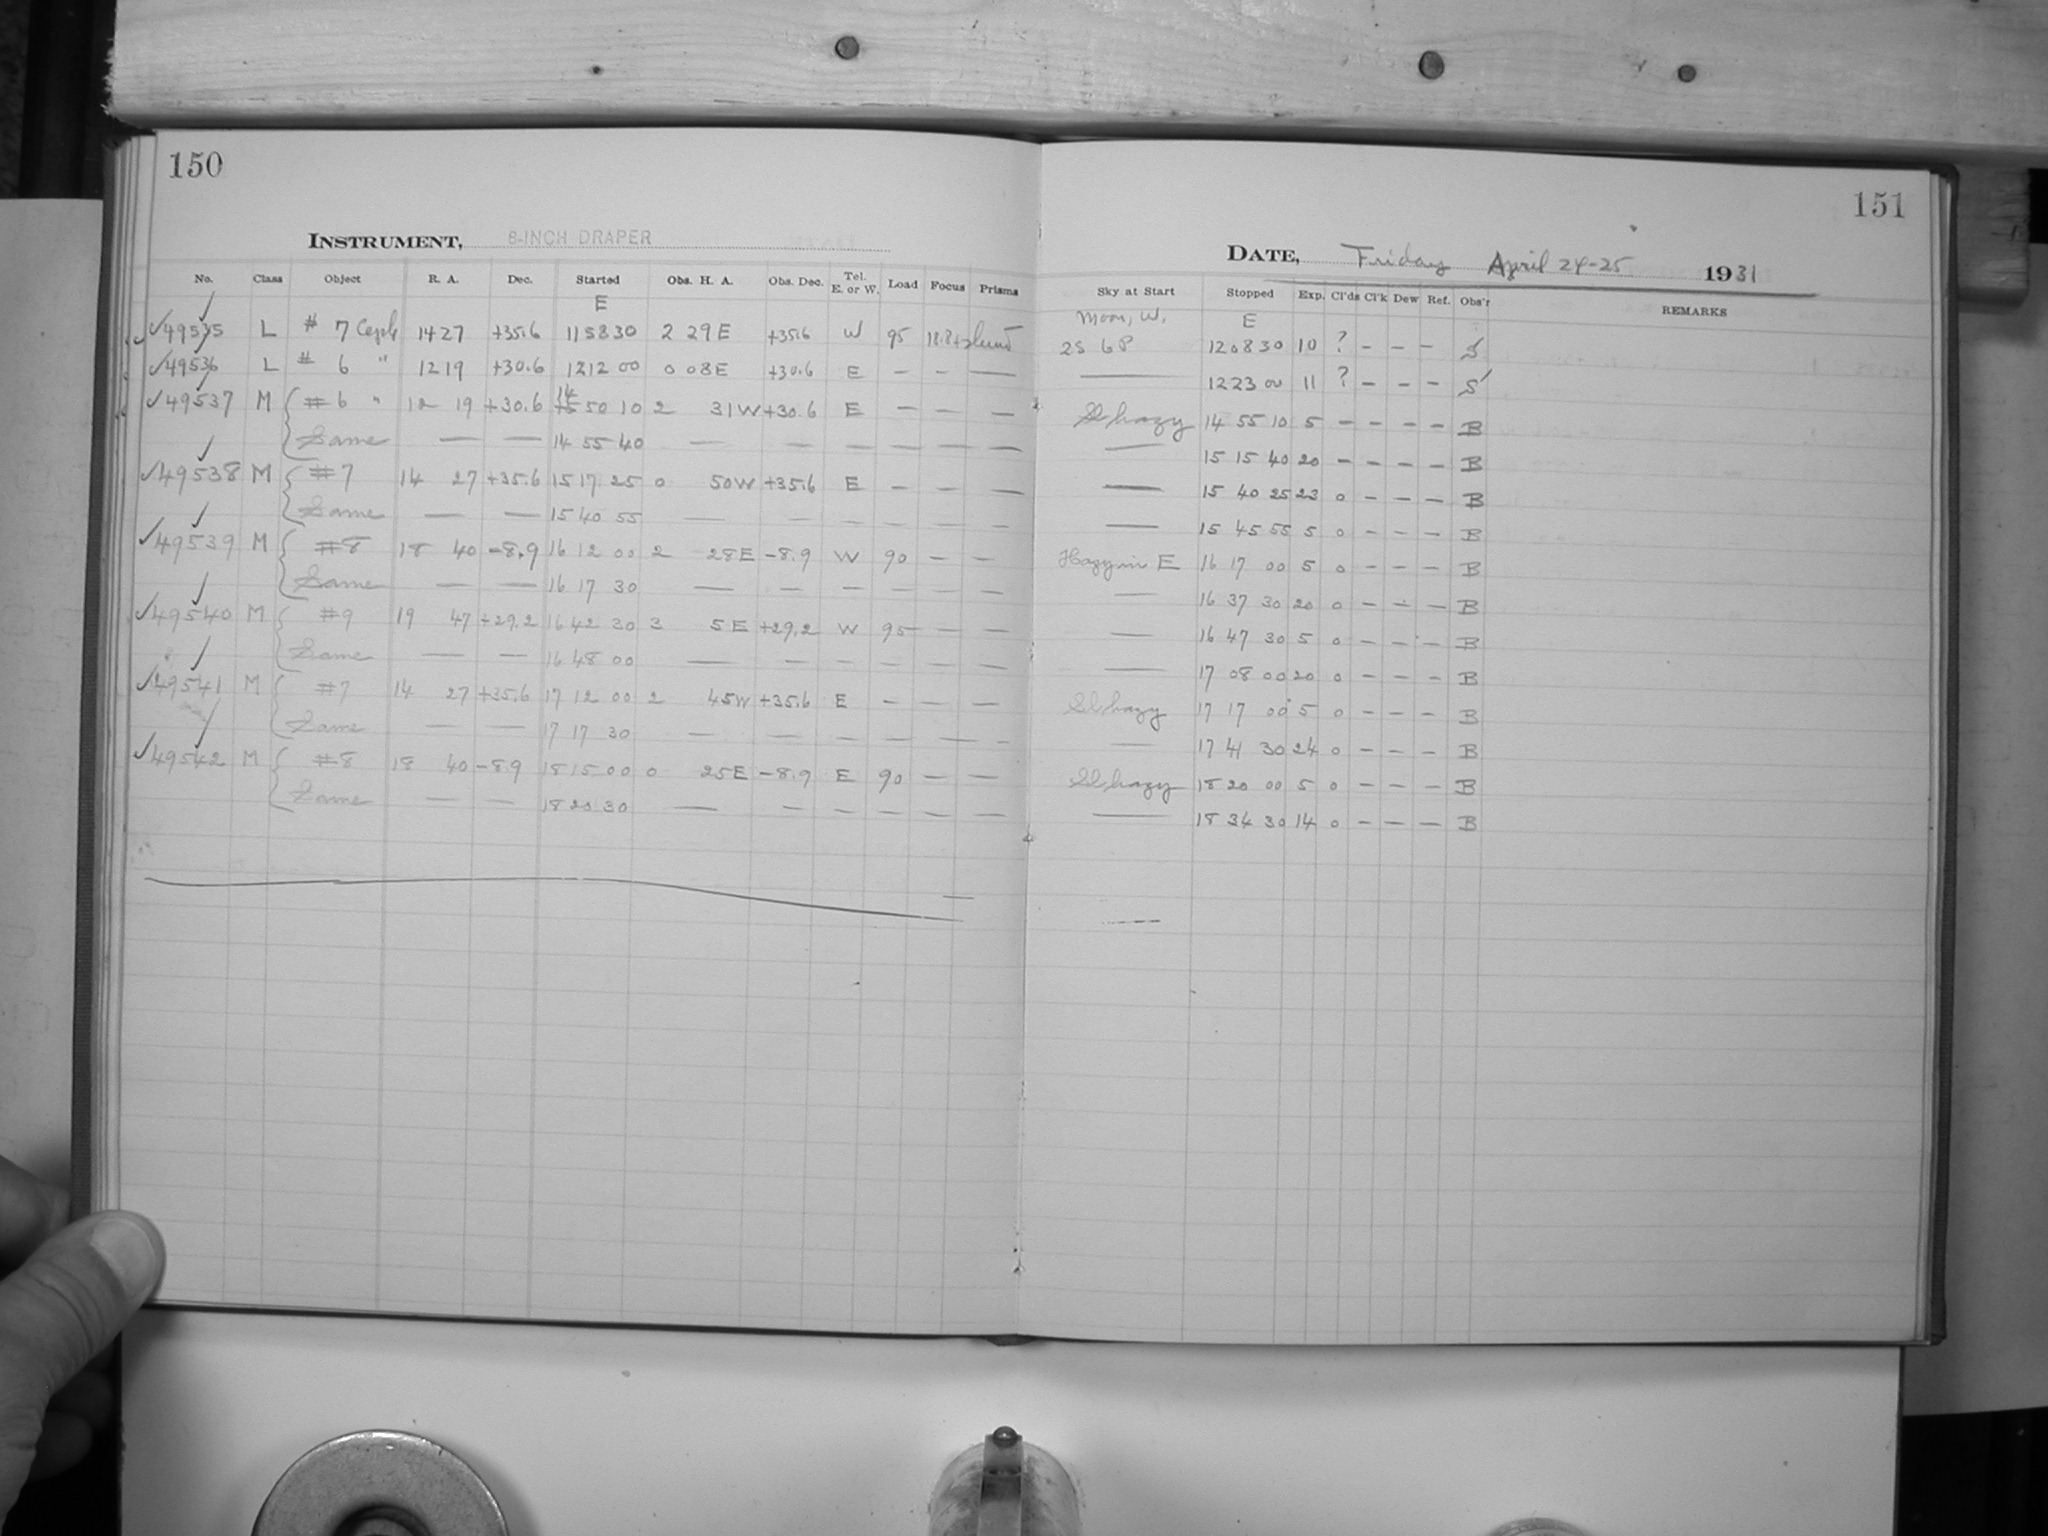 150
INSTRUMENT, 8-INCH DRAPER
No. Class Object R. A. Dec. Started Obs. H. A. Obs. Dec. Tel. E. or W. Load Focus Prisms
E
49535 L # 7 Ceph 14 27 +35.6 11 58 30 2 29 E +35.6 W 95
49536 L # 6 " 12 19 +30.6 12 12 00 0 08 E +30.6 E — — —
49537 M # 6 " 12 19 +30.6 14 50 10 2 31 W +30.6 E — — —
Same — — 14 55 40 — — — — — —
49538 M #7 14 27 +35.6 15 17 25 0 50 W +35.6 E — — —
Same — — 15 40 55 — — — — — —
49539 M #8 18 40 -8.9 16 12 00 2 28 E -8.9 W 90 — —
Same — — 16 17 30 — — — — — —
49540 M #9 19 47 +29.2 16 42 30 3 5 E +29.2 W 95 — —
Same — — 16 48 00 — — — — — —
49541 M #7 14 27 +35.6 17 12 00 2 45 W +35.6 E — — —
Same — — 17 17 30 — — — — — —
49542 M #8 18 40 -8.9 18 15 00 0 25 E -8.9 E 90 — —
Same — — 18 20 30 — — — — — —
151
DATE, Friday April 24-25 1931
Sky at Start Stopped Exp. Cl'ds Cl'k Dew Ref. Obs'r REMARKS
Moon, W. E
2S 6P 12 08 30 10 ? — — — S
— 12 23 00 11 ? — — — S
Sl hazy 14 55 10 5 — — — — B
— 15 15 40 20 — — — — B
— 15 40 25 23 0 — — — B
— 15 45 55 5 0 — — — B
Hazy in E 16 17 00 5 0 — — — B
— 16 37 30 20 0 — — — B
— 16 47 30 5 0 — — — B
— 17 08 00 20 0 — — — B
Sl hazy 17 17 00 5 0 — — — B
— 17 41 30 24 0 — — — B
Sl hazy 18 20 00 5 0 — — — B
— 18 34 30 14 0 — — — B